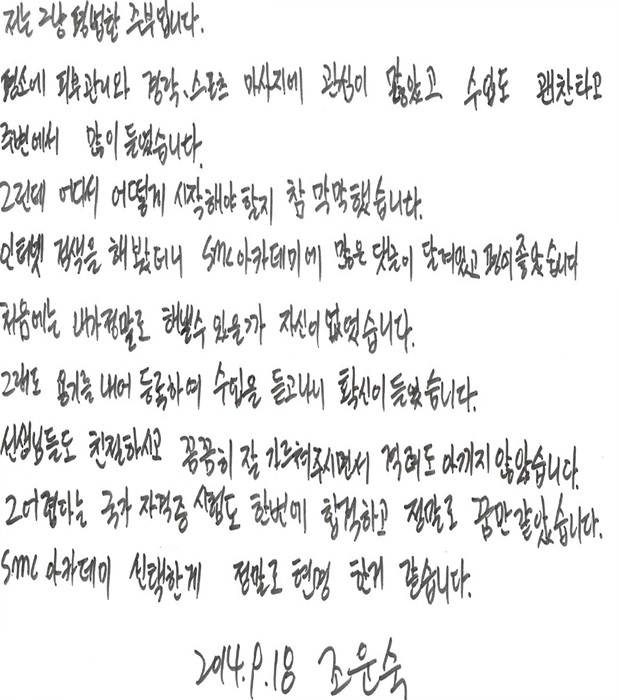 저는 그냥 평범한 주부입니다.
평소에 피부관리와 경락, 스포츠 마사지에 관심이 많았고 수입도 괜찬타고
주변에서 많이 들었습니다.
그런데 어디서 어떻게 시작해야 할지 참 막막했습니다.
인터넷 검색을 해봤더니 SMC아카데미에 많은 댓글이 달려있고 평이 좋았습니다
처음에는 내가 정말로 해낼수 있을까 자신이 없었습니다.
그래도 용기를 내어 등록하여 수업을 듣고나니 확신이 들었습니다.
선생님들도 친절하시고 꼼꼼히 잘 가르쳐주시면서 격려도 아끼지 않았습니다.
그 어렵다는 국가 자격증 시험도 한번에 합격하고 정말로 꿈만 같았습니다.
SMC아카데미 선택한게 정말로 현명 한거 같습니다.
2014.9.18 조운숙